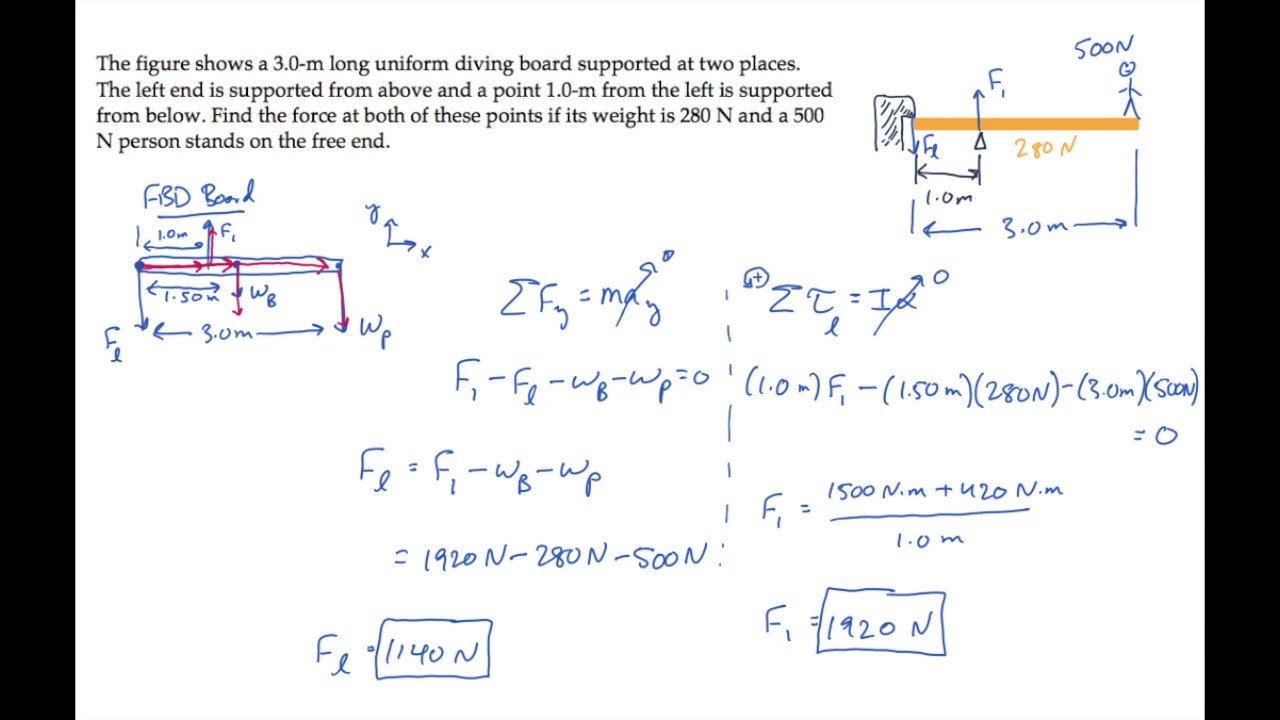 The figure shows a 3.0-m long uniform diving board supported at two places.
The left end is supported from above and a point 1.0-m from the left is supported
from below. Find the force at both of these points if its weight is 280 N and a 500
N person stands on the free end.
500N
F₁
Fℓ
280N
1.0m
3.0m
FBD Board
1.0m
F₁
1.50m
W_B
3.0m
Fℓ
W_P
y
x
ΣF_y = ma_y 0
F₁ - Fℓ - W_B - W_P = 0
Fℓ = F₁ - W_B - W_P
= 1920N - 280N - 500N
Fℓ = 1140 N
+ Στ_ℓ = Iα 0
(1.0 m) F₁ - (1.50m)(280N) - (3.0m)(500N)
= 0
F₁ = 1500 N·m + 420 N·m
1.0 m
F₁ = 1920 N